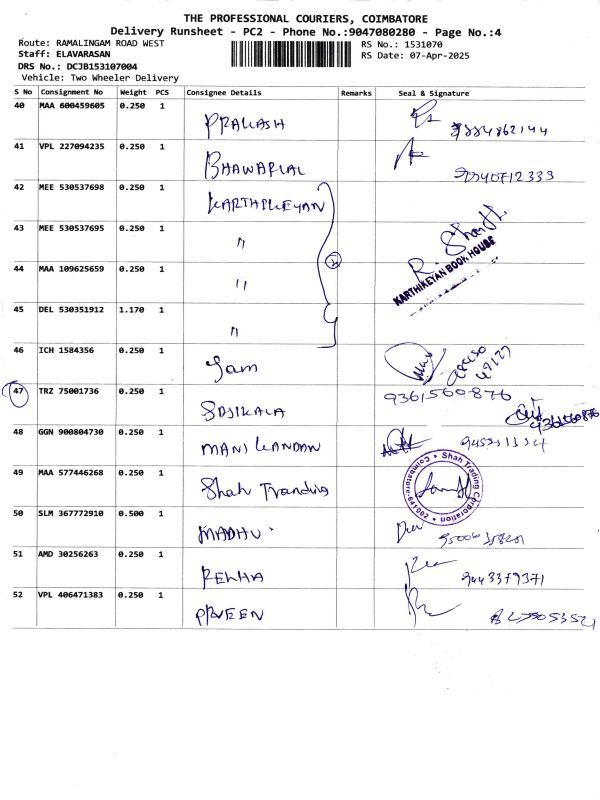 THE PROFESSIONAL COURIERS, COIMBATORE
Delivery Runsheet - PC2 - Phone No.:9047080280 - Page No.:4
Route: RAMALINGAM ROAD WEST
RS No.: 1531070
Staff: ELAVARASAN
RS Date: 07-Apr-2025
DRS No.: DCJB153107004
Vehicle: Two Wheeler Delivery
S No Consignment No Weight PCS Consignee Details Remarks Seal & Signature
40 MAA 600459605 0.250 1 PRAKASH 9884862144
41 VPL 227094235 0.250 1 BHAWARLAL
42 MEE 530537698 0.250 1 KARTHIKEYAN
43 MEE 530537695 0.250 1 "
44 MAA 109625659 0.250 1 "
KARTHIKEYAN BOOK HOUSE
45 DEL 530351912 1.170 1 "
46 ICH 1584356 0.250 1
47 TRZ 75001736 0.250 1 SASIKALA 9361560876
9361560876
48 GGN 900804730 0.250 1 MANI KANDAN
49 MAA 577446268 0.250 1 Shah Tranding
Shah Trading Corporation * Coimbatore-641 002 *
50 SLM 367772910 0.500 1 MADHU
51 AMD 30256263 0.250 1 REKHA 9443379371
52 VPL 406471383 0.250 1 PRVEEN